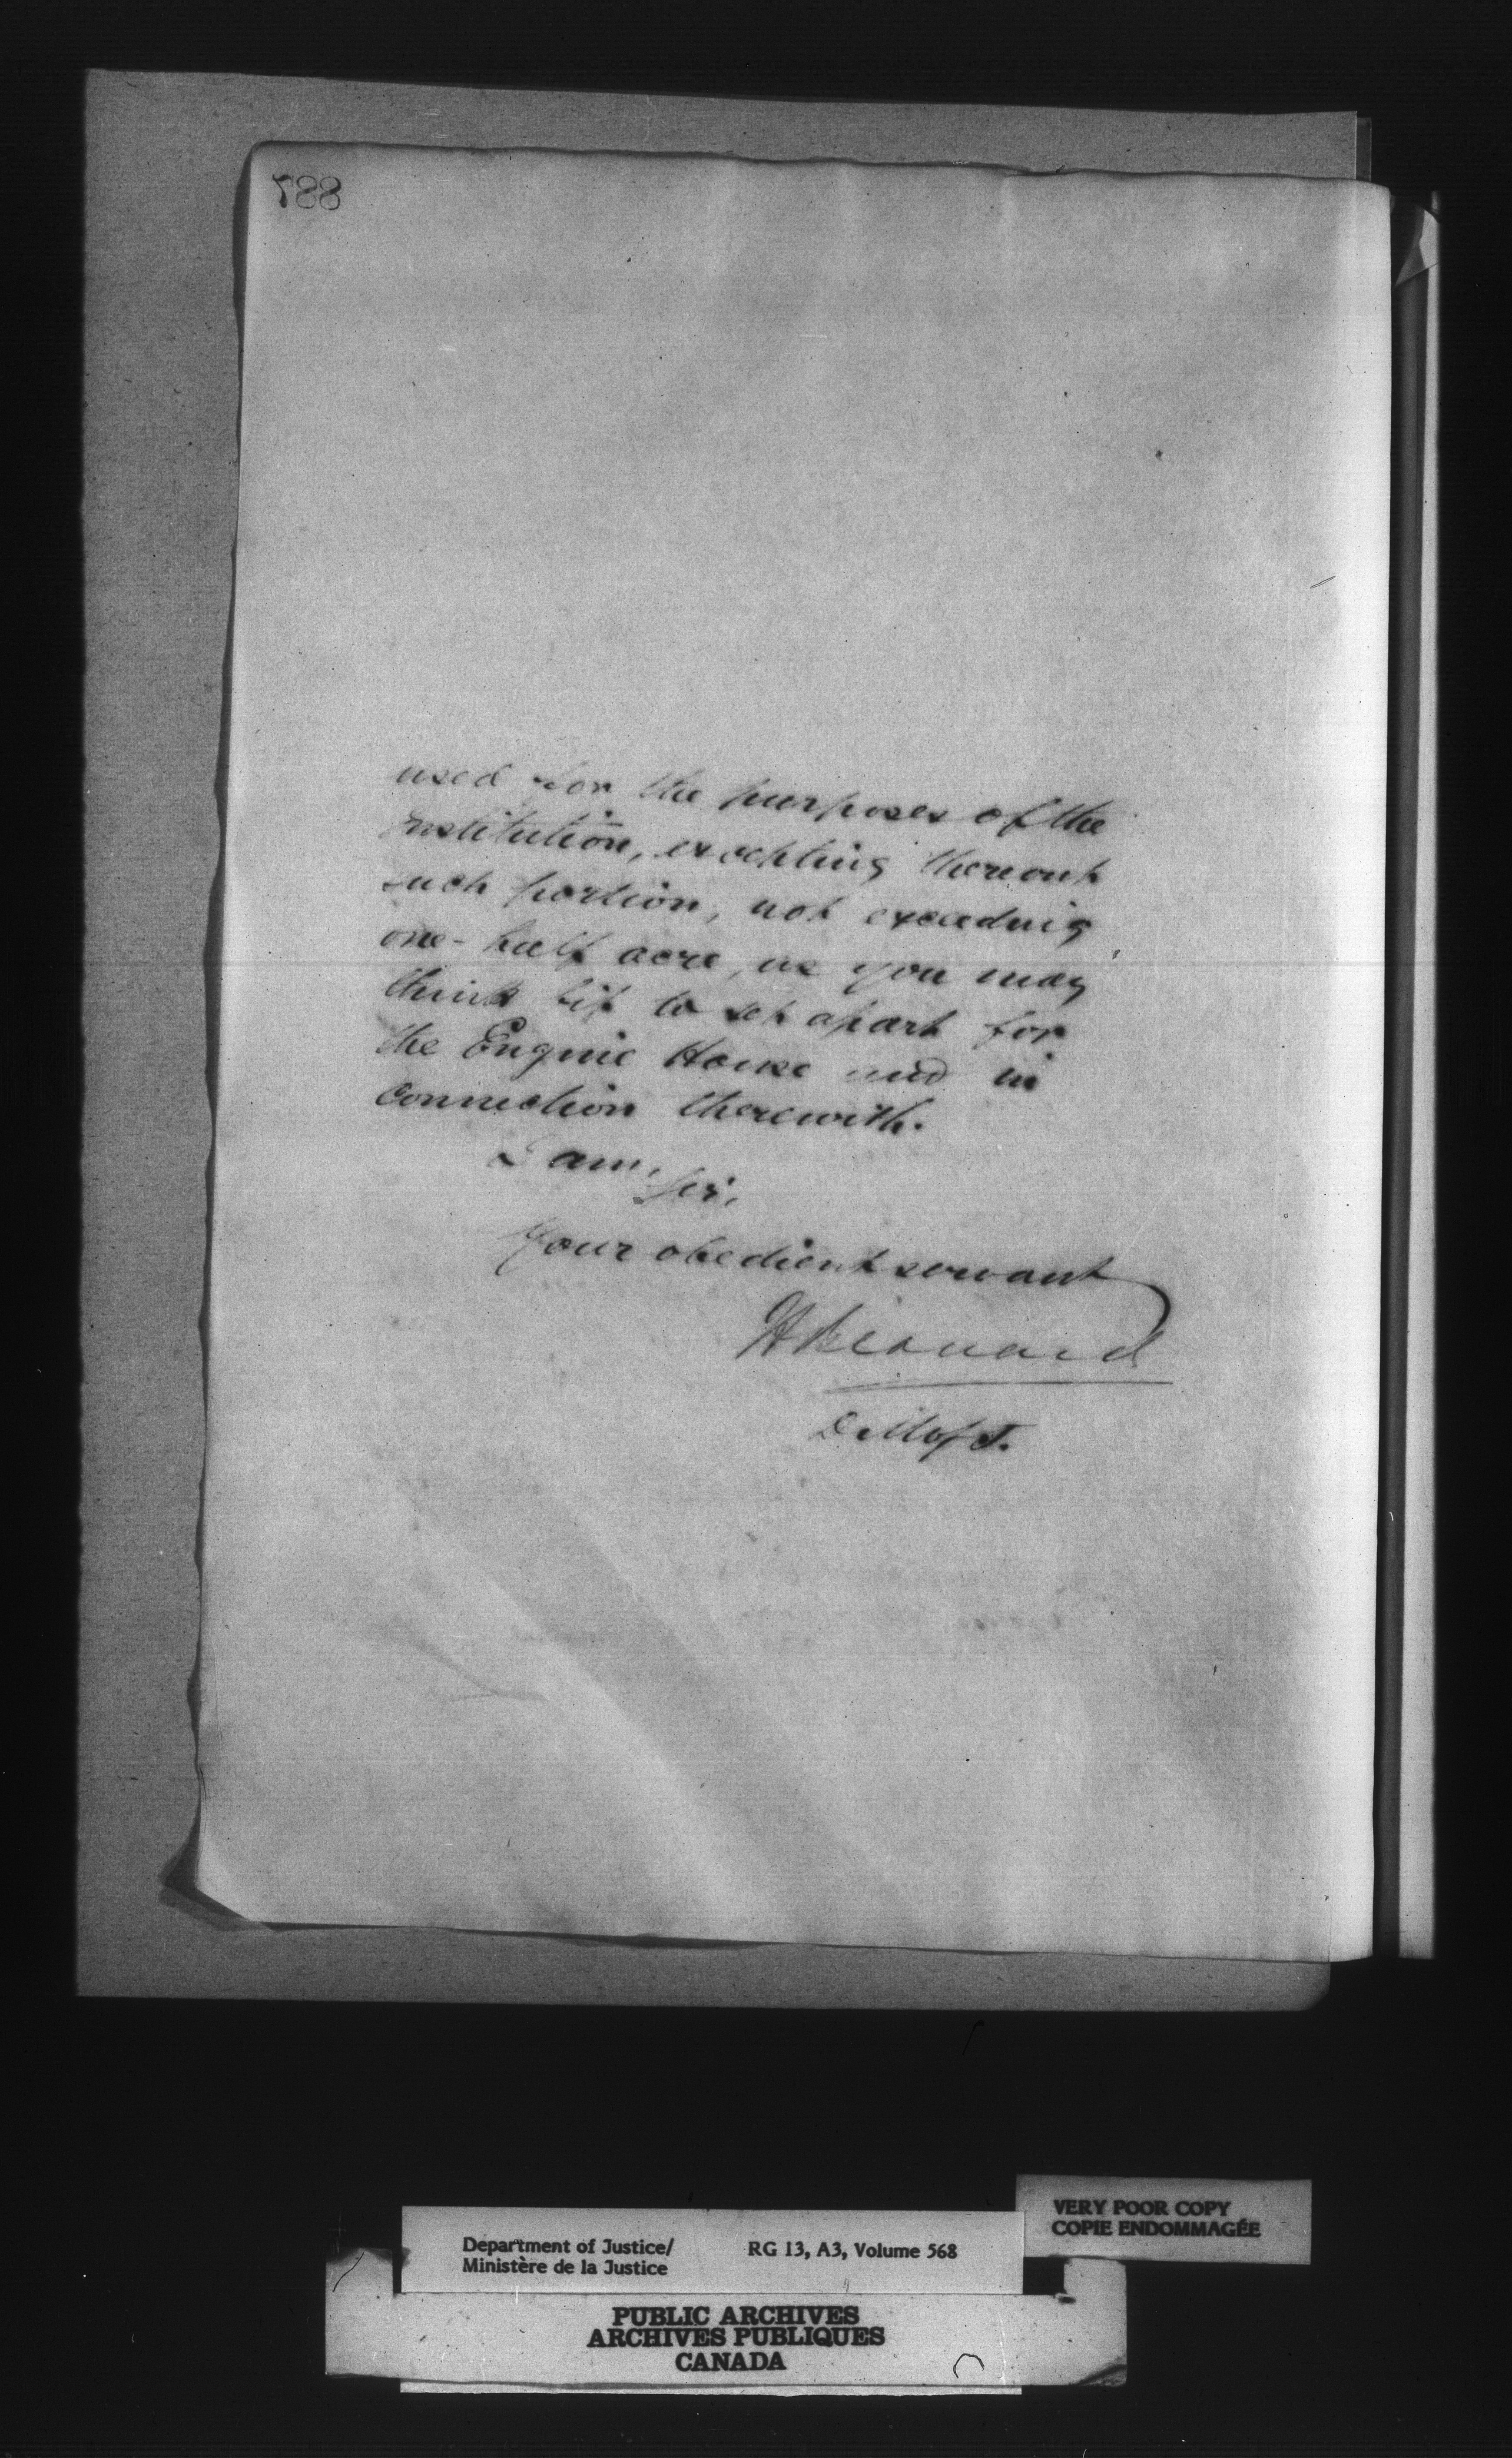 788
used for the purposes of the
Institution, excepting thereout
such portion, not exceeding
one-half acre, as you may
think fit to set apart for
the Engine House and in
connection therewith.
I am,
Sir,
Your obedient servant
H Bernard
D. M of J.
VERY POOR COPY
COPIE ENDOMMAGÉE
Department of Justice/ RG 13, A3, Volume 568
Ministère de la Justice
PUBLIC ARCHIVES
ARCHIVES PUBLIQUES
CANADA